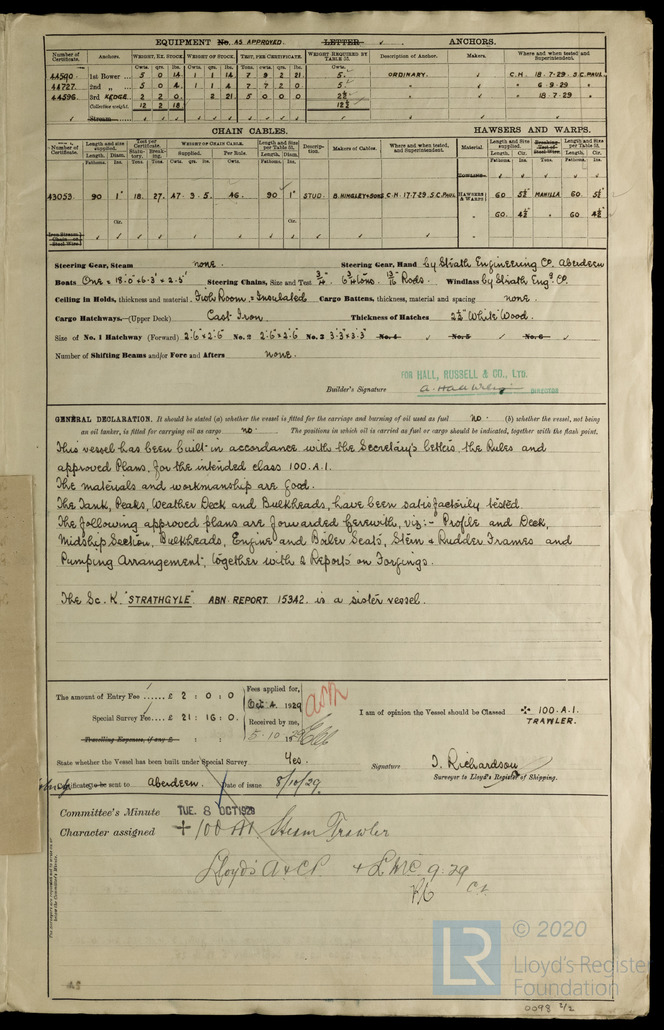 EQUIPMENT No. AS APPROVED. LETTER ANCHORS.
Number of Certificate. Anchors. WEIGHT, EX. STOCK. WEIGHT OF STOCK. TEST, PER CERTIFICATE. WEIGHT REQUIRED BY TABLE 31. Description of Anchor. Makers. Where and when tested and Superintendent.
Cwts. qrs. lbs. Cwts. qrs. lbs. Tons. cwts. qrs. lbs. Cwts.
44590 1st Bower ... 5 0 14 1 1 14 7 9 2 21 5. ORDINARY. C.H. 18.7.29. S.C. PAUL
44727 2nd " ... 5 0 4 1 1 4 7 7 2 0 5. 6.9.29 "
44596 3rd KEDGE 2 2 0 2 21 5 0 0 0 18.7.29 "
Collective weight. 12 2 18
Stream
CHAIN CABLES. HAWSERS AND WARPS.
Number of Certificate. Length and size supplied. Test per Certificate. WEIGHT OF CHAIN CABLE. Length and size per Table 31. Description. Makers of Cables. Where and when tested, and Superintendent. Material. Length and Size supplied. Breaking Test of Steel Wire. Length and Size per Table 31.
Length. Diam. Statutory. Breaking. Supplied. Per Rule. Length. Diam. Length. Cir. Length. Cir.
Fathoms. Ins. Tons. Tons. Cwts. qrs. lbs. Cwts. Fathoms. Ins. Fathoms. Ins. Tons. Fathoms. Ins.
TOWLINE
43053 90 1" 18. 27. 47. 3. 5. 46. 90 1" STUD B. HINGLEY & SONS C.H. 17.7.29. S.C. PAUL HAWSERS & WARPS 60 5½ MANILLA 60 5½
" 60. 4½ " 60. 4½
Cir. Cir.
Iron Stream Chain or Steel Wire
Steering Gear, Steam none. Steering Gear, Hand by Strath Engineering Co. Aberdeen
Boats One = 18'.0" x 6'.3" x 2'.5" Steering Chains, Size and Test Rods. Windlass by Strath Eng. Co.
Ceiling in Holds, thickness and material Fish Room = Insulated Cargo Battens, thickness, material and spacing none.
Cargo Hatchways. (Upper Deck) Cast Iron Thickness of Hatches 2½" White Wood.
Size of No. 1 Hatchway (Forward) 2'.6" x 2'.6" No. 2 2'.6" x 2'.6" No. 3 3'.3" x 3'.3" No. 4 No. 5 No. 6
Number of Shifting Beams and/or Fore and Afters none.
FOR HALL, RUSSELL & CO., LTD.
Builder's Signature DIRECTOR
GENERAL DECLARATION. It should be stated (a) whether the vessel is fitted for the carriage and burning of oil used as fuel no. (b) whether the vessel, not being
an oil tanker, is fitted for carrying oil as cargo no. The positions in which oil is carried as fuel or cargo should be indicated, together with the flash point.
This vessel has been built in accordance with the Secretary's letters, the Rules and
approved Plans, for the intended class 100.A.1.
The materials and workmanship are Good.
The Tank, Peaks, Weather Deck and Bulkheads, have been satisfactorily tested.
The following approved plans are forwarded herewith, viz:- Profile and Deck,
Midship Section, Bulkheads, Engine and Boiler Seats, Stern & Rudder Frames and
Pumping Arrangement, together with 2 Reports on Forgings.
The Sc. K. "STRATHGYLE" ABN REPORT 15342. is a sister vessel.
The amount of Entry Fee ...... £ 2 : 0 : 0
Fees applied for,
Oct. 4. 1929
Special Survey Fee .... £ 21 : 16 : 0.
Received by me,
5.10.1929
Travelling Expenses, if any £ : :
I am of opinion the Vessel should be Classed ✠ 100.A.1.
TRAWLER.
State whether the Vessel has been built under Special Survey Yes.
Signature J. Richardson
Surveyor to Lloyd's Register of Shipping.
Certificate to be sent to Aberdeen. Date of issue 8/10/29.
Committee's Minute TUE. 8 OCT 1929
Character assigned ✠ 100 A1. Steam Trawler
Lloyd's A & CP + LMC 9.29
C.L.
© 2020
LR
Lloyd's Register
Foundation
0098 2/2